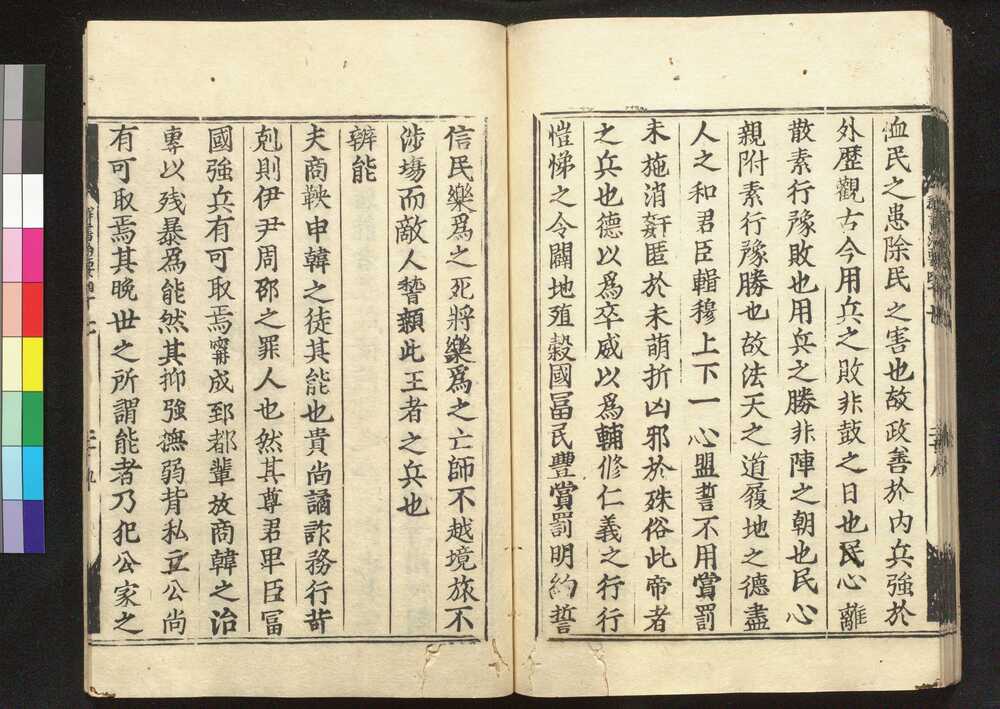 恤民之患除民之害也故政善於内兵強於
外歴觀古今用兵之敗非鼓之日也民心離
散素行豫敗也用兵之勝非陣之朝也民心
親附素行豫勝也故法天之道履地之德盡
人之和君臣輯穆上下一心盟誓不用賞罰
未施消姧匿於未萌折凶邪於殊俗此帝者
之兵也德以爲卒威以爲輔修仁義之行行
愷悌之令闢地殖穀國冨民豐賞罰明約誓
信民樂爲之死將樂爲之亡師不越境旅不
渉塲而敵人𥡴顙此王者之兵也
辨能
夫商鞅申韓之徒其能也貴尚譎詐務行苛
尅則伊尹周邵之罪人也然其尊君卑臣冨
國強兵有可取焉甯成郅都輩放商韓之治
專以残暴爲能然其抑強撫弱背私立公尚
有可取焉其晩世之所謂能者乃犯公家之
群書治要四十七
二十九